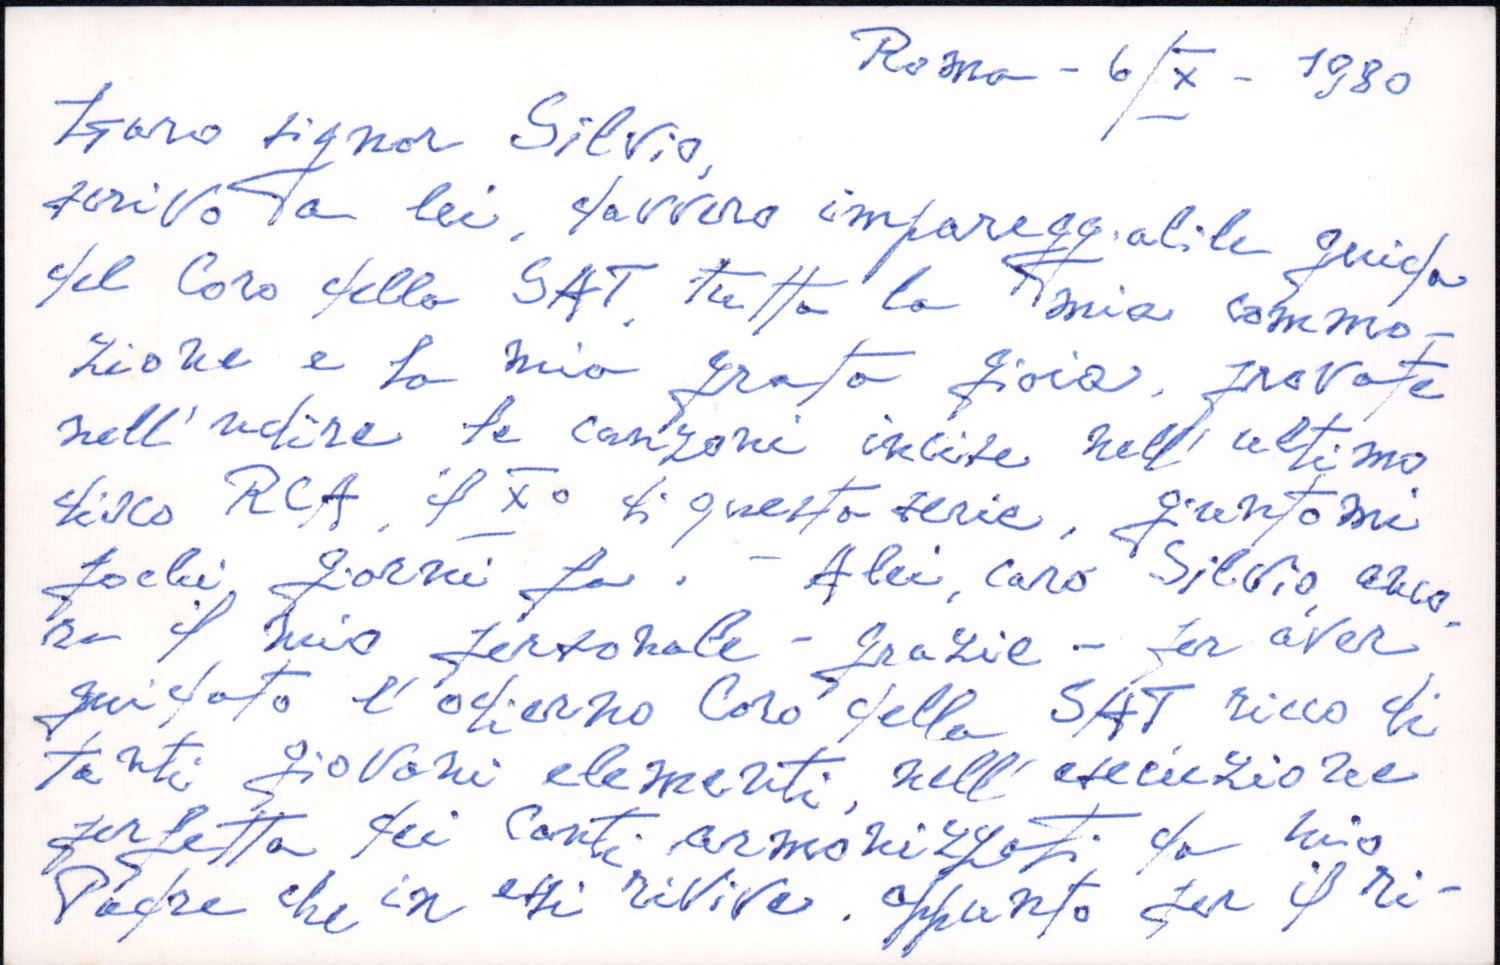 Roma - 6/X - 1980
Caro signor Silvio,
scrivo a lei, davvero impareggiabile guida
del Coro della SAT, tutta la mia commo-
zione e la mia grata gioia, provate
nell'udire le canzoni incise nell'ultimo
disco RCA, il X° di questa serie, giuntomi
pochi giorni fa. - A lei, caro Silvio, anco-
ra il mio personale - grazie - per aver
guidato l'odierno Coro della SAT ricco di
tanti giovani elementi, nell'esecuzione
perfetta dei Canti armonizzati da mio
Padre che in essi rivive. Appunto per il ri-